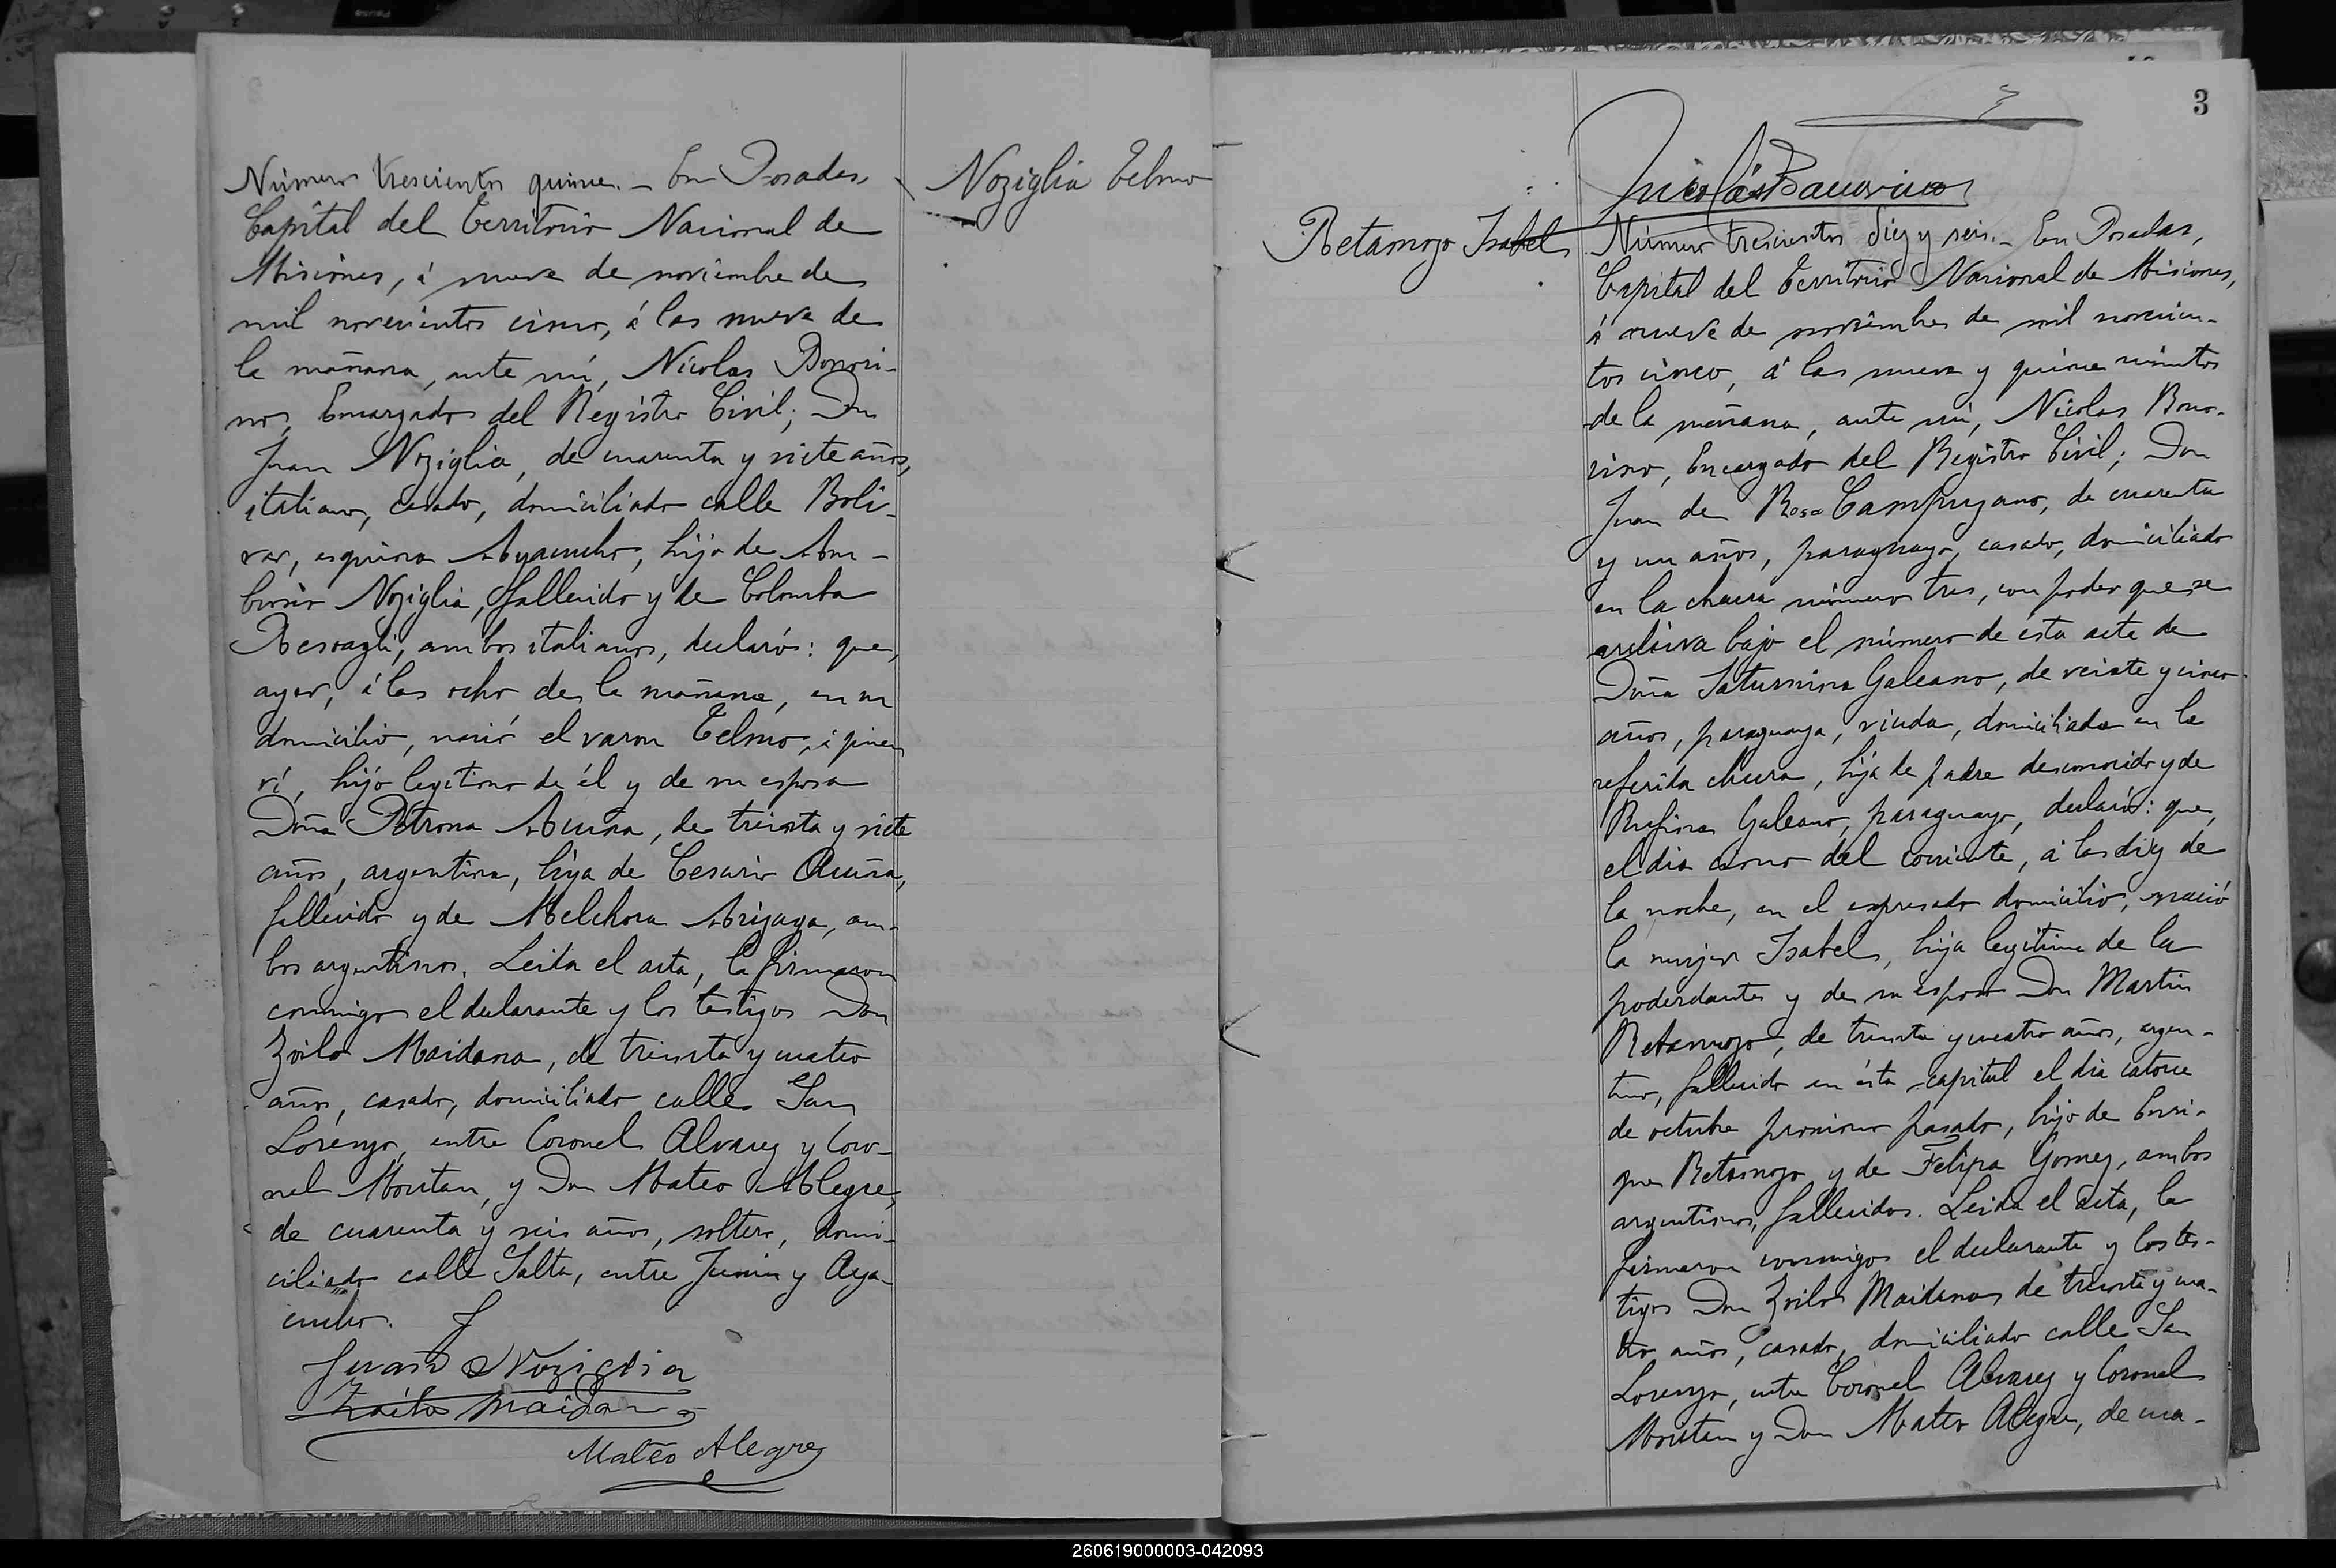 Número trescientos quince. - En Posadas,
Capital del Territorio Nacional de
Misiones, á nueve de noviembre de
mil novecientos cinco, á las nueve de
la mañana, ante mí, Nicolas Bonori-
no, Encargado del Registro Civil; Don
Juan Noziglia, de cuarenta y siete años,
italiano, casado, domiciliado calle Boli-
var, esquina Ayacucho, hijo de Am-
brosio Noziglia, fallecido y de Colomba
ambos italianos, declaró: que,
ayer, á las ocho de la mañana, en su
domicilio, nació el varon Telmo, á quien
ví, hijo legítimo de él y de su esposa
Doña Petrona Acuña, de treinta y siete
años, argentina, hija de Cesario Acuña,
fallecido y de Melchora Arizaga, am-
bos argentinos. Leida el acta, la firmaron
conmigo el declarante y los testigos Don
Zoilo Maidana, de treinta y cuatro
años, casado, domiciliado calle San
Lorenzo, entre Coronel Alvarez y Coro-
nel Moritan, y Don Mateo Alegre,
de cuarenta y seis años, soltero, domi-
ciliado calle Salta, entre Junin y Aya-
cucho.
Juan Noziglia
Zoilo Maidana
Mateo Alegre
Noziglia Telmo
3
Nicolás Bonorino
Retamozo Isabel
Número trescientos diez y seis. - En Posadas,
Capital del Territorio Nacional de Misiones,
á nueve de noviembre de mil novecien-
tos cinco, á las nueve y quince minutos
de la mañana, ante mí, Nicolas Bono-
rino, Encargado del Registro Civil; Don
Juan de Rosa Campuzano, de cuarenta
y un años, paraguayo, casado, domiciliado
en la chacra número tres, con poder que se
archiva bajo el número de esta acta de
Doña Saturnina Galeano, de veinte y cinco
años, paraguaya, viuda, domiciliada en la
referida chacra, hija de padre desconocido y de
Rufina Galeano, paraguaya, declaró: que,
el dia cinco del corriente, á las diez de
la noche, en el expresado domicilio, nació
la mujer Isabel, hija legítima de la
poderdante y de su esposo Don Martin
Retamozo, de treinta y cuatro años, argen-
tino, fallecido en ésta capital el dia catorce
de octubre proximo pasado, hijo de Enri-
que Retamozo y de Felipa Gomez, ambos
argentinos, fallecidos. Leida el acta, la
firmaron conmigo el declarante y los tes-
tigos Don Zoilo Maidana de treinta y cua-
tro años, casado, domiciliado calle San
Lorenzo, entre Coronel Alvarez y Coronel
Moritan y Don Mateo Alegre, de cua-
260619000003-042093